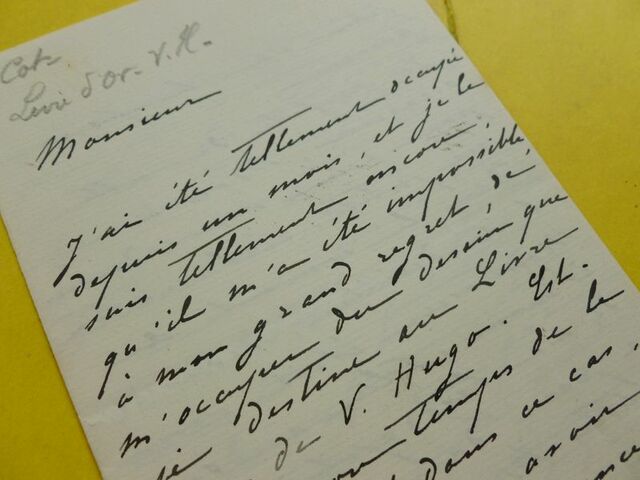 Livre d'Or - V. H.
Monsieur
J'ai été tellement occupé
depuis un mois, et je le
suis tellement encore,
qu'il m'a été impossible,
à mon grand regret, de
m'occuper du dessin que
je destine au Livre
de V. Hugo. Est-
temps de le
dans ce cas,
avoir